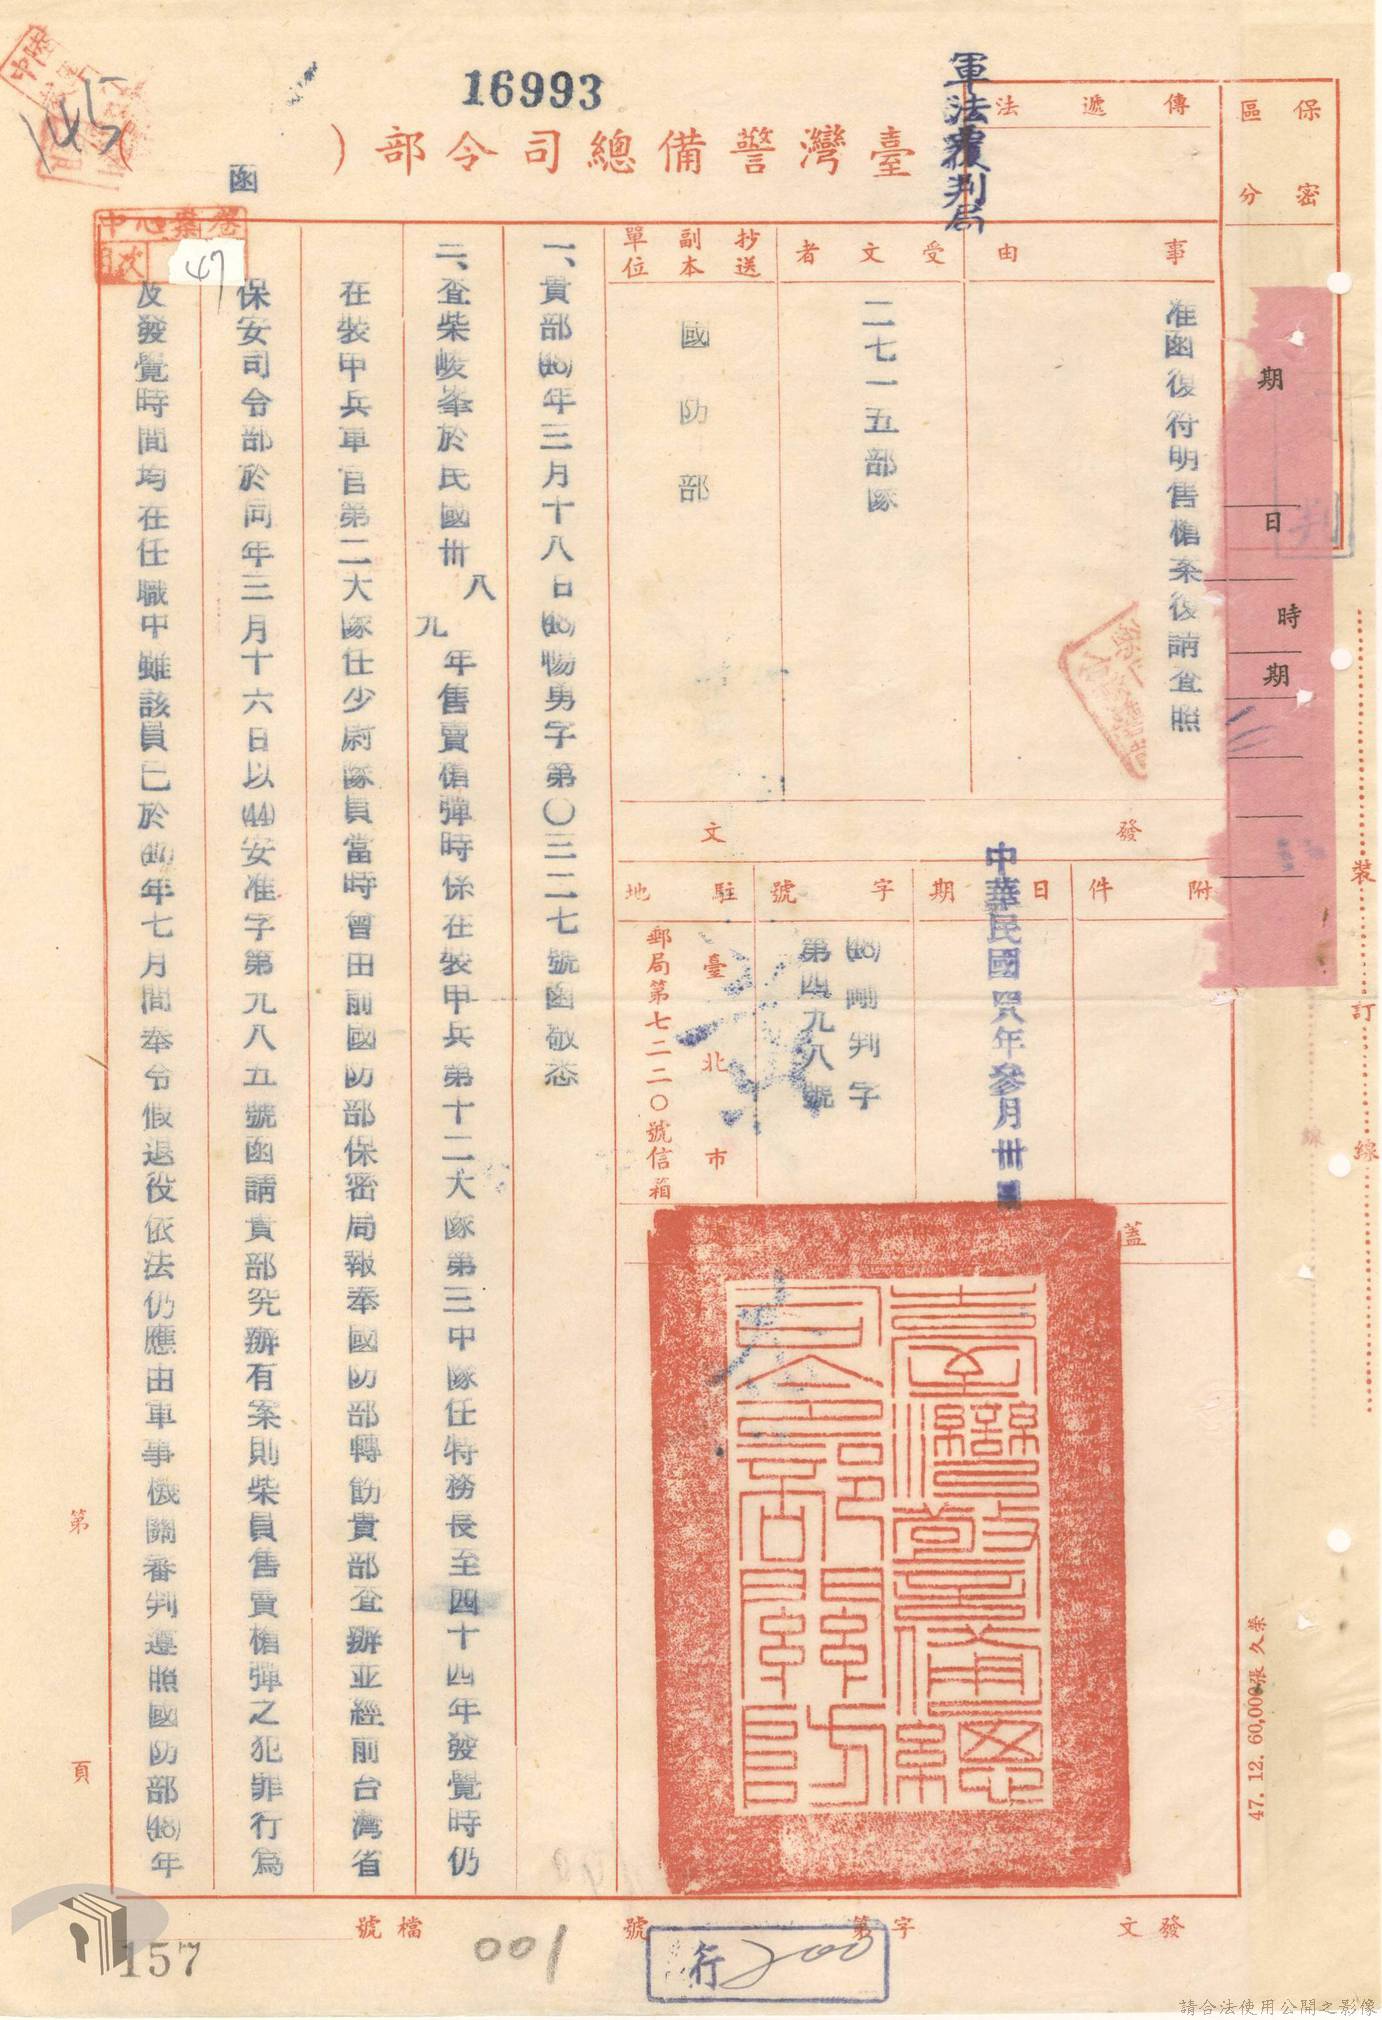 16993
軍法覆判局
臺灣警備總司令部(
)
函
保密
區分
傳遞法
事由
准函復符明售槍案復請查照
受文者
二七一五部隊
抄送
副本
單位
國防部
發文
附件
日期
中華民國 年參月卅
字號
判字
第四九八號
駐地
臺北市
郵局第七二二○號信箱
蓋
臺灣警備總司令部關防
期
日
時
期
判
一、貴部(48)年三月十八日(48)暢勇字第○三二七號函敬悉
二、查柴峻峯於民國卅八九年售賣槍彈時係在裝甲兵第十二大隊第三中隊任特務長至四十四年發覺時仍
在裝甲兵軍官第二大隊任少尉隊員當時曾由前國防部保密局報奉國防部轉飭貴部查辦並經前台灣省
保安司令部於同年三月十六日以(44)安准字第九八五號函請貴部究辦有案則柴員售賣槍彈之犯罪行為
及發覺時間均在任職中雖該員已於(47)年七月間奉令假退役依法仍應由軍事機關審判遵照國防部(48)年
中心案卷
目次
47
145
裝訂線
線
47. 12. 60,000張 久榮
第頁
發文
字第
號
檔號
001
行
200
157
請合法使用公開之影像